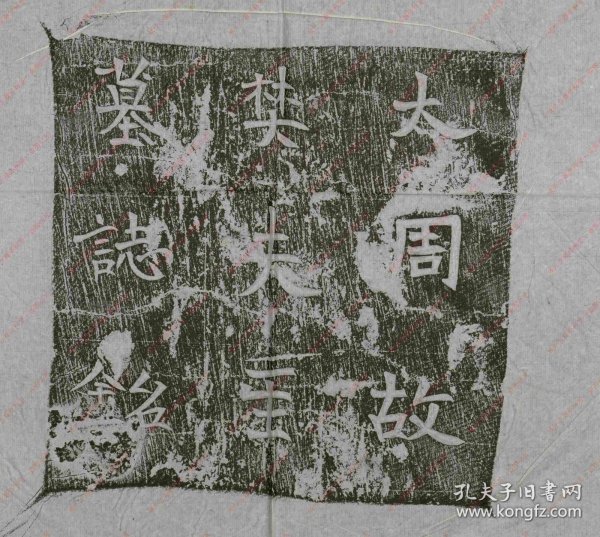 大周故
樊夫𤯔
墓誌銘
孔夫子旧书网
www.kongfz.com